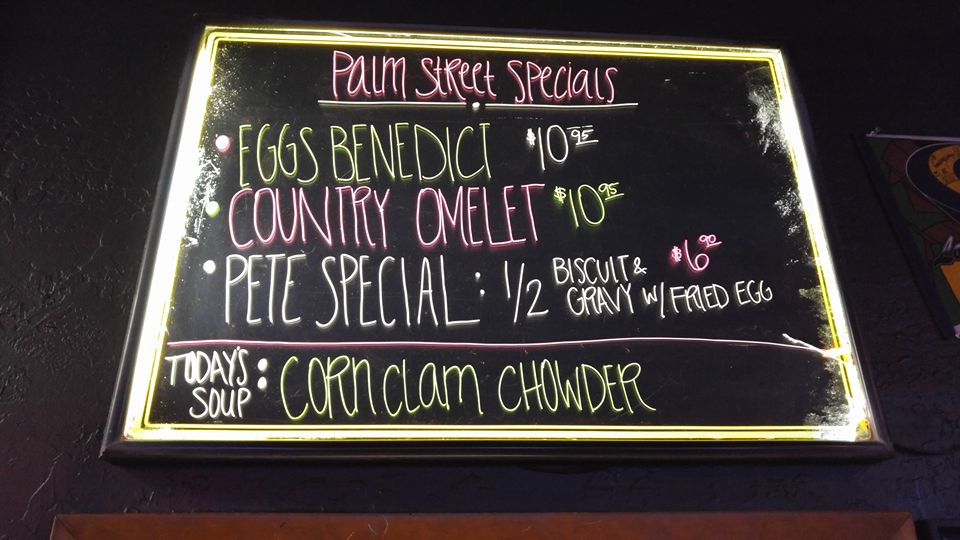 Palm Street Specials
• EGGS BENEDICT $10.95
• COUNTRY OMELET $10.95
• PETE SPECIAL: 1/2 BISCUIT & GRAVY W/ FRIED EGG $6.90
TODAY'S SOUP: CORN Clam CHOWDER